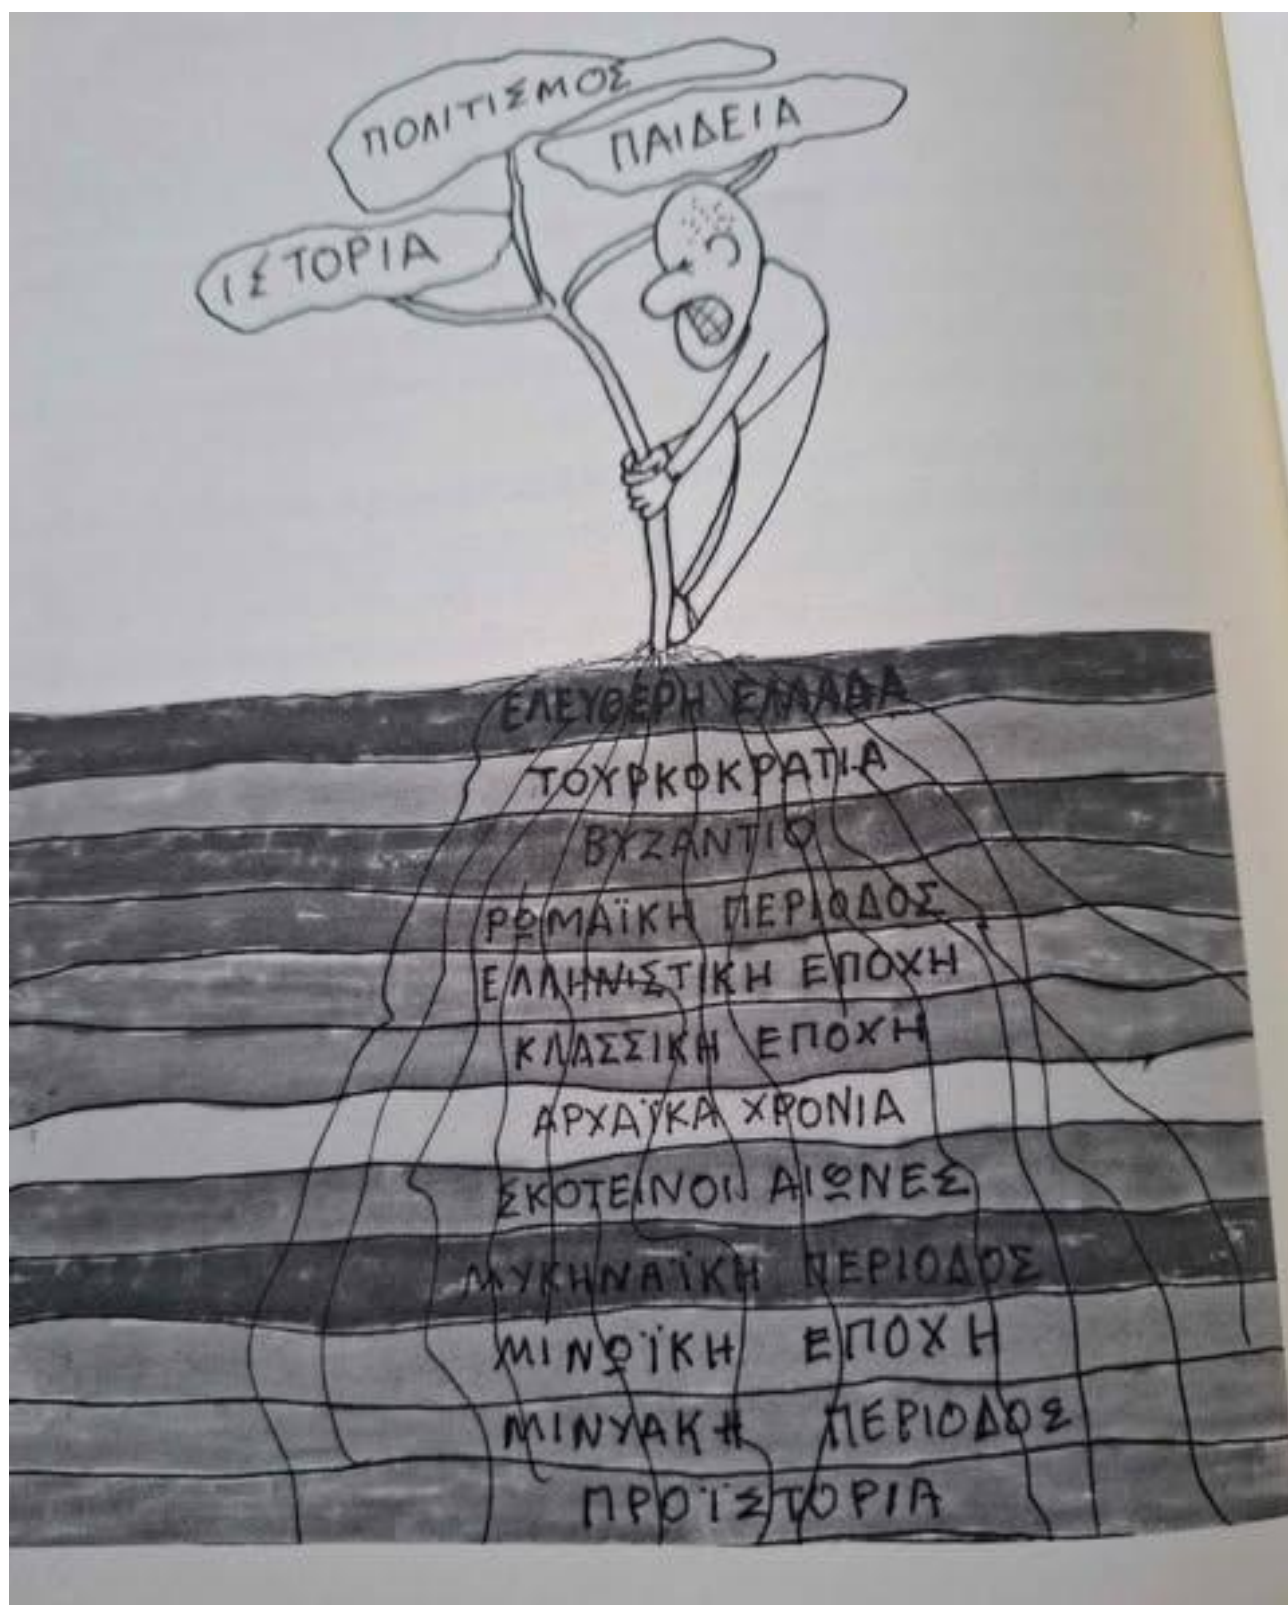 ΠΟΛΙΤΙΣΜΟΣ
ΠΑΙΔΕΙΑ
ΙΣΤΟΡΙΑ
ΕΛΕΥΘΕΡΗ ΕΛΛΑΔΑ
ΤΟΥΡΚΟΚΡΑΤΙΑ
ΒΥΖΑΝΤΙΟ
ΡΩΜΑΪΚΗ ΠΕΡΙΟΔΟΣ
ΕΛΛΗΝΙΣΤΙΚΗ ΕΠΟΧΗ
ΚΛΑΣΣΙΚΗ ΕΠΟΧΗ
ΑΡΧΑΪΚΑ ΧΡΟΝΙΑ
ΣΚΟΤΕΙΝΟΙ ΑΙΩΝΕΣ
ΜΥΚΗΝΑΪΚΗ ΠΕΡΙΟΔΟΣ
ΜΙΝΩΪΚΗ ΕΠΟΧΗ
ΜΙΝΥΑΚΗ ΠΕΡΙΟΔΟΣ
ΠΡΟΪΣΤΟΡΙΑ